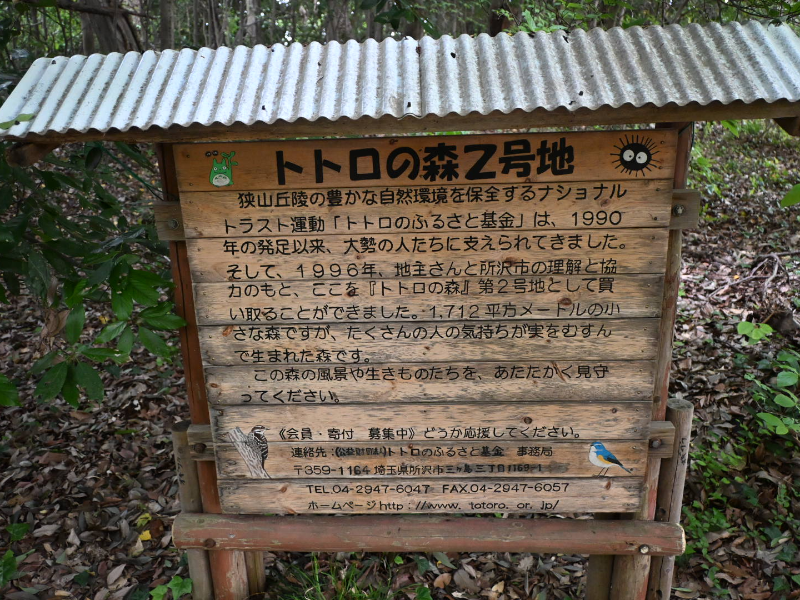 トトロの森2号地
狭山丘陵の豊かな自然環境を保全するナショナル
トラスト運動「トトロのふるさと基金」は、1990
年の発足以来、大勢の人たちに支えられてきました。
そして、1996年、地主さんと所沢市の理解と協
力のもと、ここを『トトロの森』第2号地として買
い取ることができました。1,712平方メートルの小
さな森ですが、たくさんの人の気持ちが実をむすん
で生まれた森です。
この森の風景や生きものたちを、あたたかく見守
ってください。
《会員・寄付 募集中》どうか応援してください。
連絡先:(公益財団法人)トトロのふるさと基金 事務局
〒359-1164 埼玉県所沢市三ヶ島三丁目1169-1
TEL.04-2947-6047 FAX.04-2947-6057
ホームページhttp://www.totoro.or.jp/